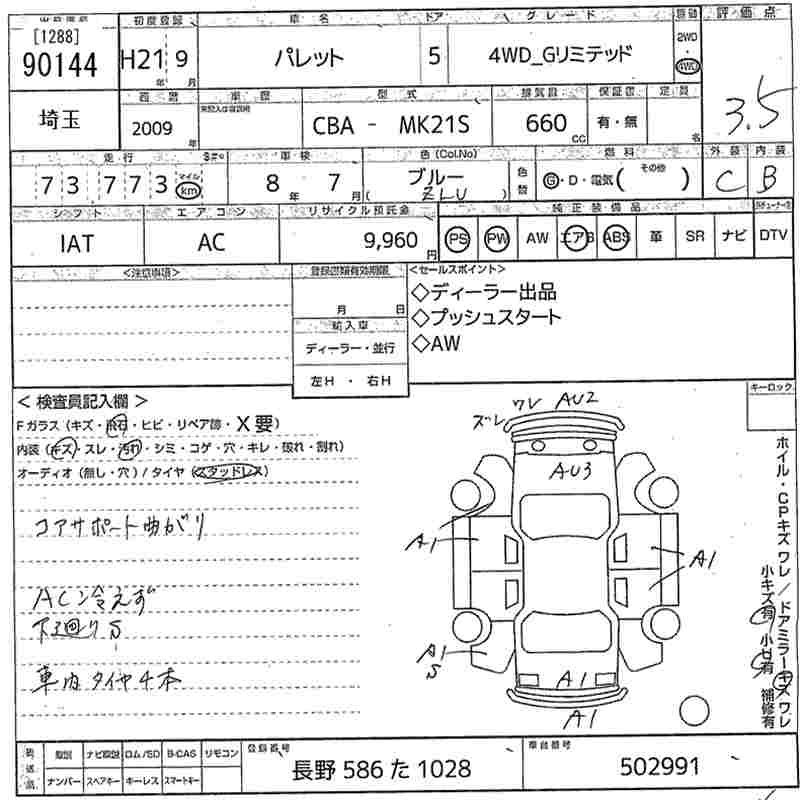 [1288]
90144
初度登録 車名 ドア グレード 評価点
H21 9 パレット 5 4WD_Gリミテッド 2WD・4WD
年 月
3.5
埼玉
西暦 車歴 型式 排気量 保証書 定員
2009年 CBA - MK21S 660 CC 有・無 名
走行 車検 色(Col.No) 燃料 外装 内装
73,773 マイル km 8年 7月 ブルー (ZLU) 色替 G・D・電気( その他 ) C B
シフト エアコン リサイクル預託金 純正装備品
IAT AC 9,960円 PS PW AW エアB ABS 革 SR ナビ DTV
<注意事項> 登録書類有効期限 <セールスポイント>
月 日
◇ディーラー出品
◇プッシュスタート
◇AW
輸入車
ディーラー・並行
左H ・ 右H
< 検査員記入欄 >
Fガラス(キズ・飛石・ヒビ・リペア跡・X要)
内装(キズ・スレ・汚れ・シミ・コゲ・穴・キレ・破れ・割れ)
オーディオ(無し・穴) / タイヤ(スタッドレス)
コアサポート曲がり
AC冷えず
下廻りS
車内タイヤ4本
キーロック
ズレ ワレ AU2
AU3
A1
A1
A1
S
A1
A1
ホイル・CPキズ ワレ / ドアミラーキズ ワレ
小キズ有 小凹有 補修有
取説 ナビ取説 ロム/SD B-CAS リモコン
ナンバー スペアキー キーレス スマートキー
登録番号
長野 586 た 1028
車台番号
502991